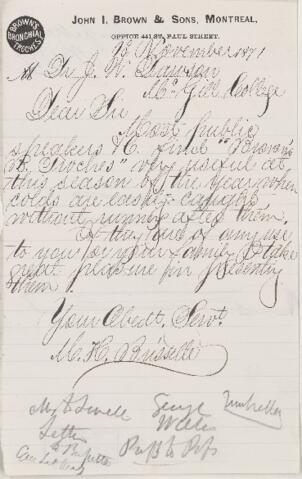 BROWN'S
BRONCHIAL
TROCHES
JOHN I. BROWN & SONS, MONTREAL.
OFFICE 441 ST. PAUL STREET.
13 November 1871
Dr J. W. Dawson
McGill College
Dear Sir
Most public
speakers &c. find "Brown's
B. Troches" very useful at
this season of the year when
colds are easily caught
without running after them.
If they are of any use
to you or your family I take
great pleasure in presenting
them
Your Obedt. Servt.
M. H. Brissette
Letter
George
Wales